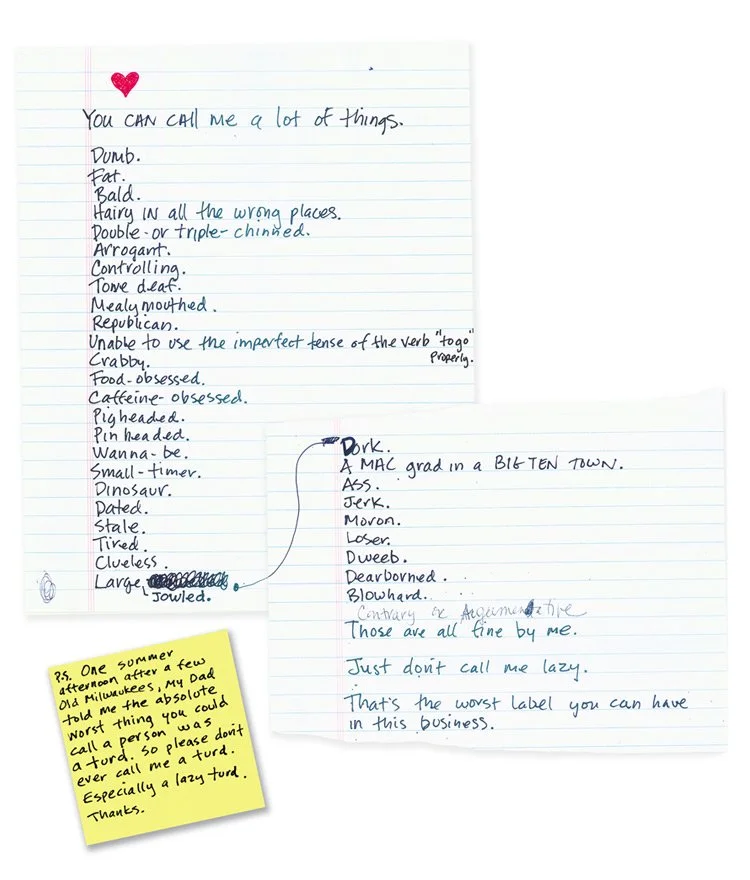 You can call me a lot of things.
Dumb.
Fat.
Bald.
Hairy in all the wrong places.
Double-or triple-chinned.
Arrogant.
Controlling.
Tone deaf.
Mealy mouthed.
Republican.
Unable to use the imperfect tense of the verb "to go"
properly.
Crabby.
Food-obsessed.
Caffeine-obsessed.
Pigheaded.
Pin headed.
Wanna-be.
Small-timer.
Dinosaur.
Dated.
Stale.
Tired.
Clueless.
Large
Jowled.
Dork.
A MAC grad in a BIG TEN TOWN.
Ass.
Jerk.
Moron.
Loser.
Dweeb.
Dearborned.
Blowhard.
Contrary or Argumentative
Those are all fine by me.
Just don't call me lazy.
That's the worst label you can have
in this business.
P.S. One summer
afternoon after a few
Old Milwaukees, my Dad
told me the absolute
worst thing you could
call a person was
a turd. So please don't
ever call me a turd.
Especially a lazy turd.
Thanks.